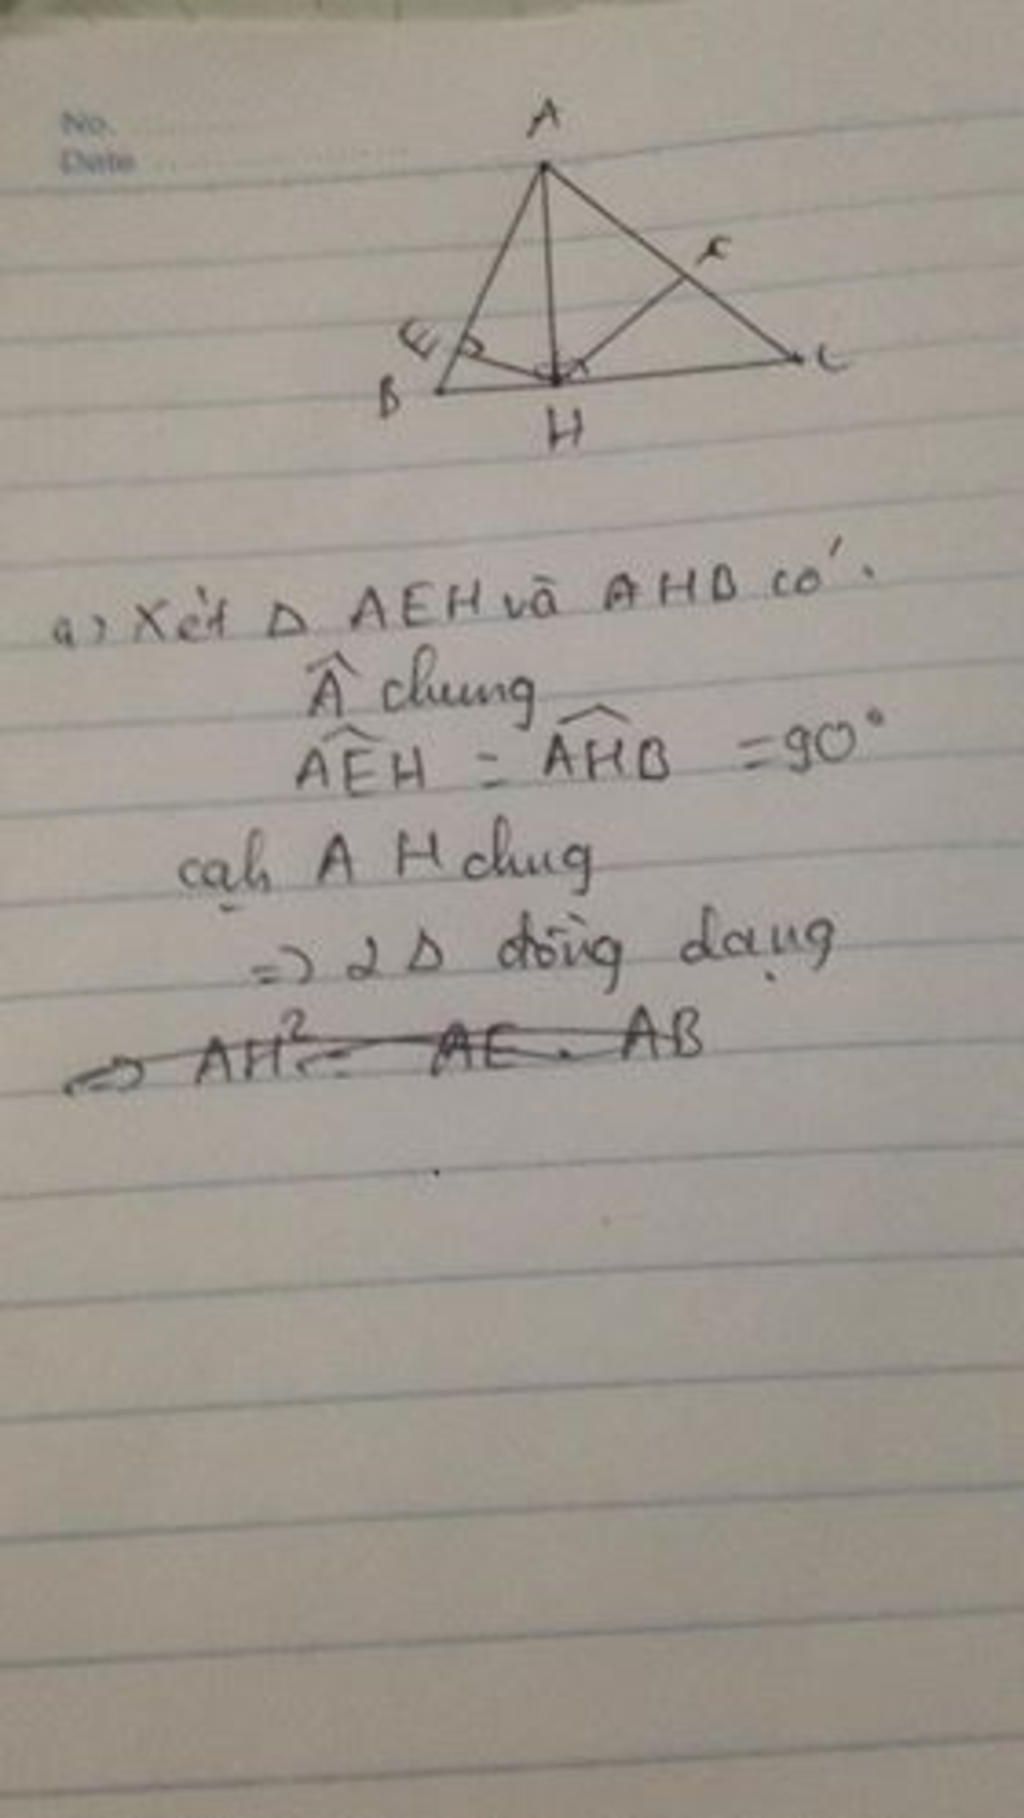 No.
Date
A
F
E
B
C
H
a) Xét Δ AEH và AHB có
Â chung
AEH = AHB = 90°
cạh AH chug
=> 2 Δ đồng dạng
=> AH² = AE . AB